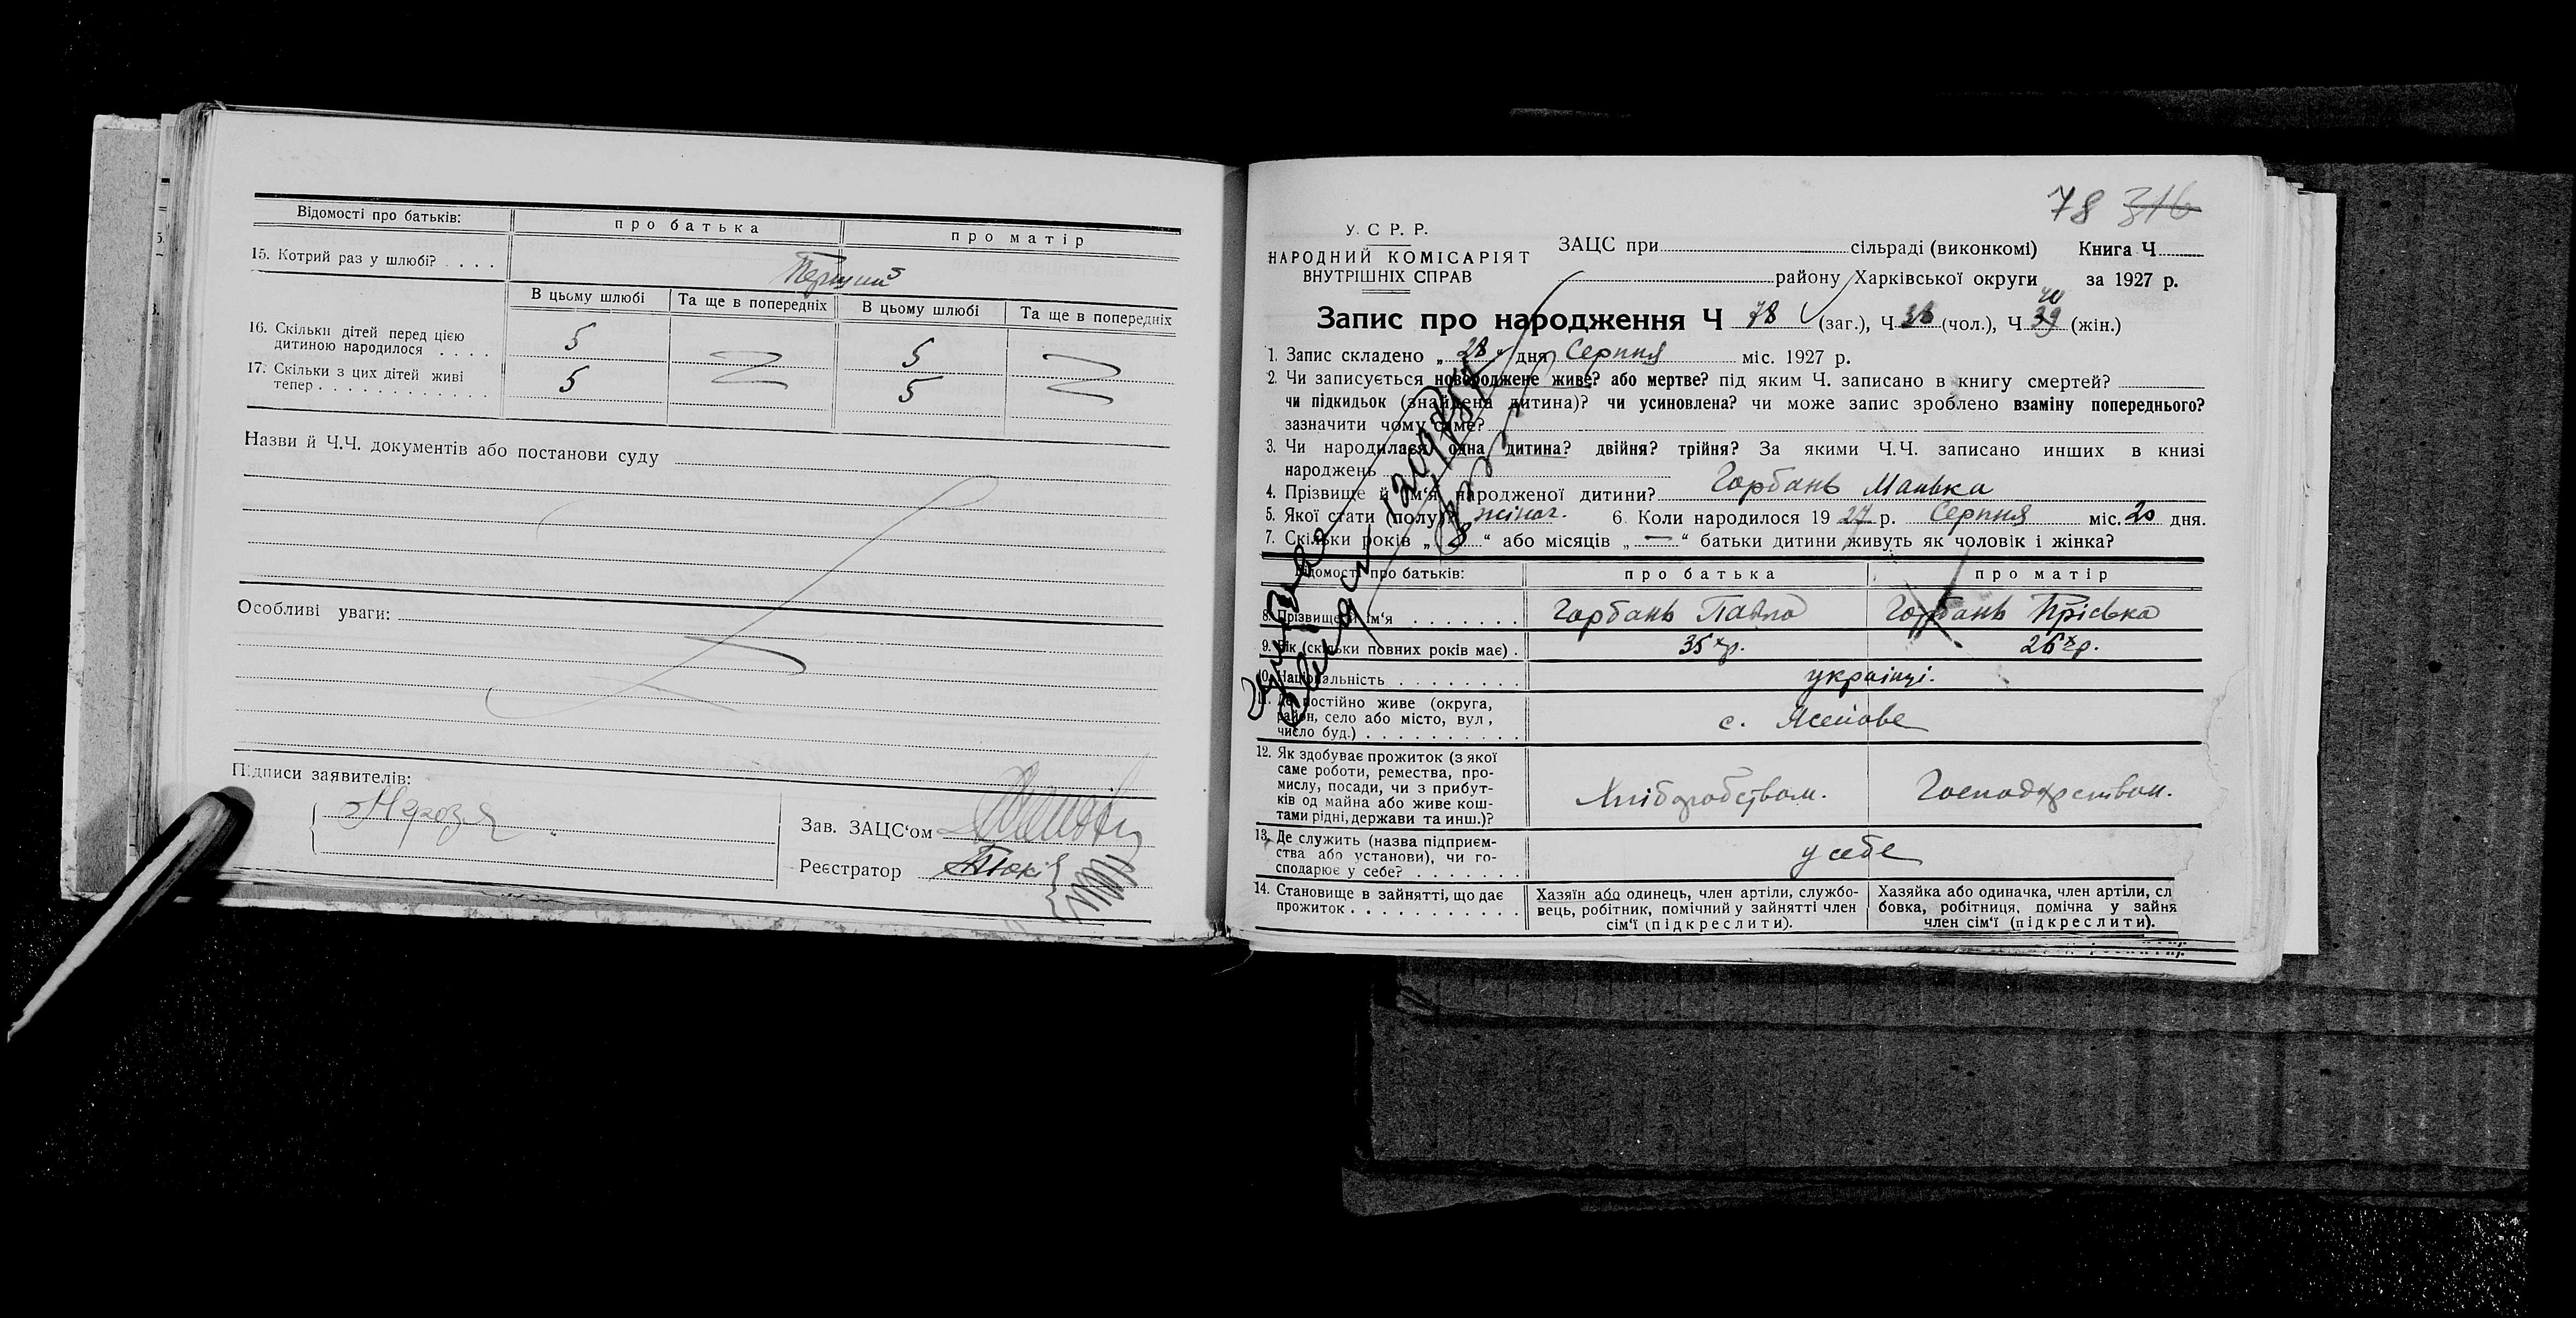 Відомості про батьків: про батька про матір
15. Котрий раз у шлюбі? . . . . Перший
В цьому шлюбі Та ще в попередніх В цьому шлюбі Та ще в попередніх
16. Скільки дітей перед цією
дитиною народилося . . . . 5 5
17. Скільки з цих дітей живі
тепер . . . . . . . . . . . . . 5 5
Назви й Ч.Ч. документів або постанови суду
Особливі уваги:
Підписи заявителів:
Зав. ЗАЦС‘ом
Реєстратор
78 316
У. С Р. Р.
НАРОДНИЙ КОМІСАРІЯТ
ВНУТРІШНІХ СПРАВ
ЗАЦС при сільраді (виконкомі) Книга Ч
району Харківської округи за 1927 р.
Запис про народження Ч 78 (заг.), Ч 38 (чол.), Ч 39 40 (жін.)
1. Запис складено „ 28 “ дня Серпня міс. 1927 р.
2. Чи записується новороджене живе? або мертве? під яким Ч. записано в книгу смертей?
чи підкидьок (знайдена дитина)? чи усиновлена? чи може запис зроблено взаміну попереднього?
зазначити чому саме?
3. Чи народилася одна дитина? двійня? трійня? За якими Ч.Ч. записано инших в книзі
народжень
4. Прізвище й ім‘я народженої дитини? Горбань Манька
5. Якої стати (полу)? жіноч. 6. Коли народилося 19 27 р. Серпня міс. 20 дня.
7. Скільки років „ 8 “ або місяців „ — “ батьки дитини живуть як чоловік і жінка?
Відомості про батьків: про батька про матір
8. Прізвище й ім‘я . . . . . . . Горбань Павло Горбань Пріська
9. Вік (скільки повних років має) . 35 р. 26 р.
10. Національність . . . . . . . . українці.
11. Де постійно живе (округа,
район, село або місто, вул ,
число буд.) . . . . . . . . . . с.
12. Як здобуває прожиток (з якої
саме роботи, ремества, про-
мислу, посади, чи з прибут-
ків од майна або живе кош-
тами рідні, держави та инш.)? Хліборобством. Господарством.
13. Де служить (назва підприєм-
ства або установи), чи го-
сподарює у себе? . . . . . . . у себе
14. Становище в зайнятті, що дає
прожиток . . . . . . . . . . .
Хазяїн або одинець, член артіли, службо-
вець, робітник, помічний у зайнятті член
сім‘ї (підкреслити).
Хазяйка або одиначка, член артіли, сл
бовка, робітниця, помічна у зайня
член сім‘ї (підкреслити).